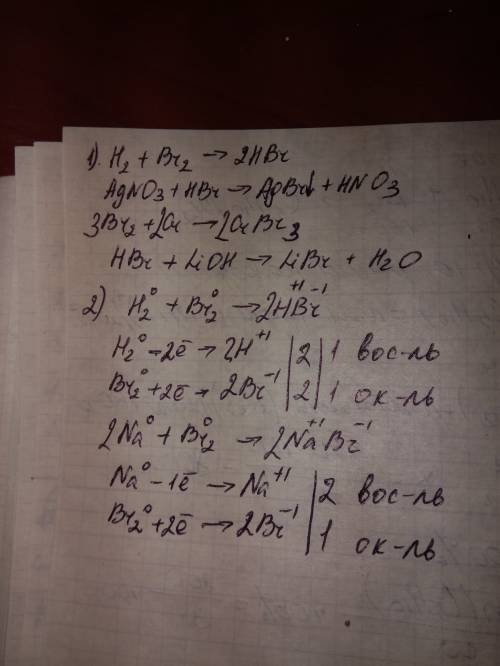 1). H₂ + Br₂ → 2HBr
AgNO₃ + HBr → AgBr↓ + HNO₃
3Br₂ + 2Cr → 2CrBr₃
HBr + LiOH → LiBr + H₂O
2) H₂⁰ + Br₂⁰ → 2H⁺¹Br⁻¹
H₂⁰ - 2ē → 2H⁺¹ | 2 | 1 вос-ль
Br₂⁰ + 2ē → 2Br⁻¹ | 2 | 1 ок-ль
2Na⁰ + Br₂⁰ → 2Na⁺¹Br⁻¹
Na⁰ - 1ē → Na⁺¹ | 2 вос-ль
Br₂⁰ + 2ē → 2Br⁻¹ | 1 ок-ль